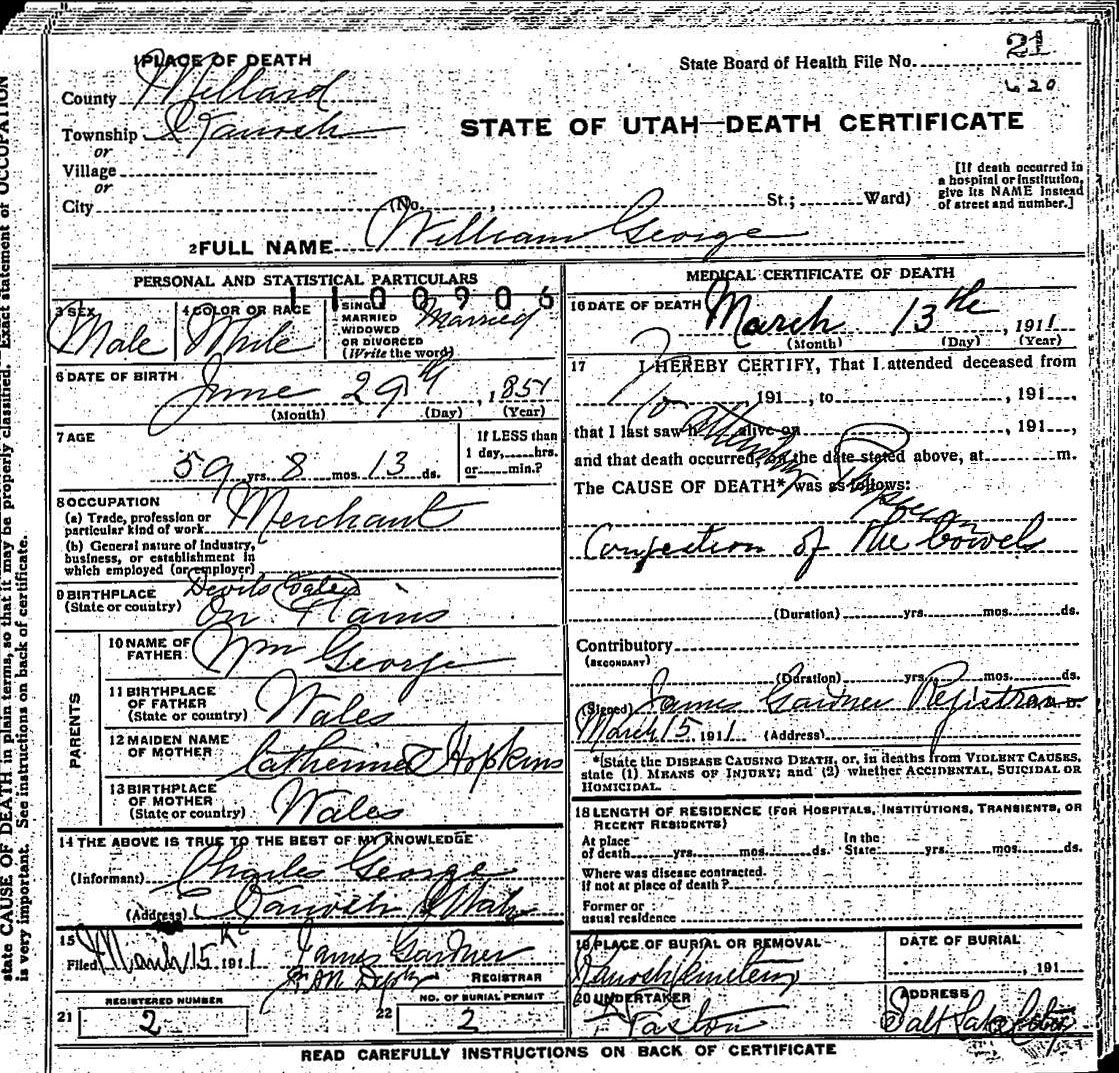 21
State Board of Health File No.
620
1 PLACE OF DEATH
County Millard
Township Kanosh
or
Village
or
City (No. , St.; Ward)
STATE OF UTAH—DEATH CERTIFICATE
[If death occurred in
a hospital or institution,
give its NAME instead
of street and number.]
2 FULL NAME William George
PERSONAL AND STATISTICAL PARTICULARS
1100906
3 SEX
Male
4 COLOR OR RACE
White
5 SINGLE
MARRIED
WIDOWED
OR DIVORCED
(Write the word)
Married
6 DATE OF BIRTH
June 29th, 1851
(Month) (Day) (Year)
7 AGE
59 yrs. 8 mos. 13 ds.
If LESS than
1 day, hrs.
or min.?
8 OCCUPATION
(a) Trade, profession or
particular kind of work
Merchant
(b) General nature of industry,
business, or establishment in
which employed (or employer)
9 BIRTHPLACE
(State or country)
Devils Gate
On Plains
PARENTS
10 NAME OF
FATHER
Wm George
11 BIRTHPLACE
OF FATHER
(State or country)
Wales
12 MAIDEN NAME
OF MOTHER
Catherine Hopkins
13 BIRTHPLACE
OF MOTHER
(State or country)
Wales
14 THE ABOVE IS TRUE TO THE BEST OF MY KNOWLEDGE
(Informant) Charles George
(Address) Kanosh Utah
15
Filed March 15 1911 James Gardner
REGISTRAR
REGISTERED NUMBER
21 2
NO. OF BURIAL PERMIT
22 2
MEDICAL CERTIFICATE OF DEATH
16 DATE OF DEATH
March 13th, 1911
(Month) (Day) (Year)
17 I HEREBY CERTIFY, That I attended deceased from
, 191 , to , 191 ,
that I last saw h alive on , 191 ,
and that death occurred, on the date stated above, at m.
The CAUSE OF DEATH* was as follows:
No attending Physician
Congestion of the bowels
(Duration) yrs. mos. ds.
Contributory
(SECONDARY)
(Duration) yrs. mos. ds.
(Signed) James Gardner Registrar M. D.
March 15 1911 (Address)
*[State the DISEASE CAUSING DEATH, or, in deaths from VIOLENT CAUSES,
state (1) MEANS OF INJURY; and (2) whether ACCIDENTAL, SUICIDAL OR
HOMICIDAL.
18 LENGTH OF RESIDENCE (FOR HOSPITALS, INSTITUTIONS, TRANSIENTS, OR
RECENT RESIDENTS)
At place
of death yrs. mos. ds.
In the
State yrs. mos. ds.
Where was disease contracted,
If not at place of death?
Former or
usual residence
19 PLACE OF BURIAL OR REMOVAL
Kanosh Cemetery
DATE OF BURIAL
, 191
20 UNDERTAKER
ADDRESS
Salt Lake City
READ CAREFULLY INSTRUCTIONS ON BACK OF CERTIFICATE
state CAUSE OF DEATH in plain terms, so that it may be properly classified. Exact statement of OCCUPATION
is very important. See instructions on back of certificate.